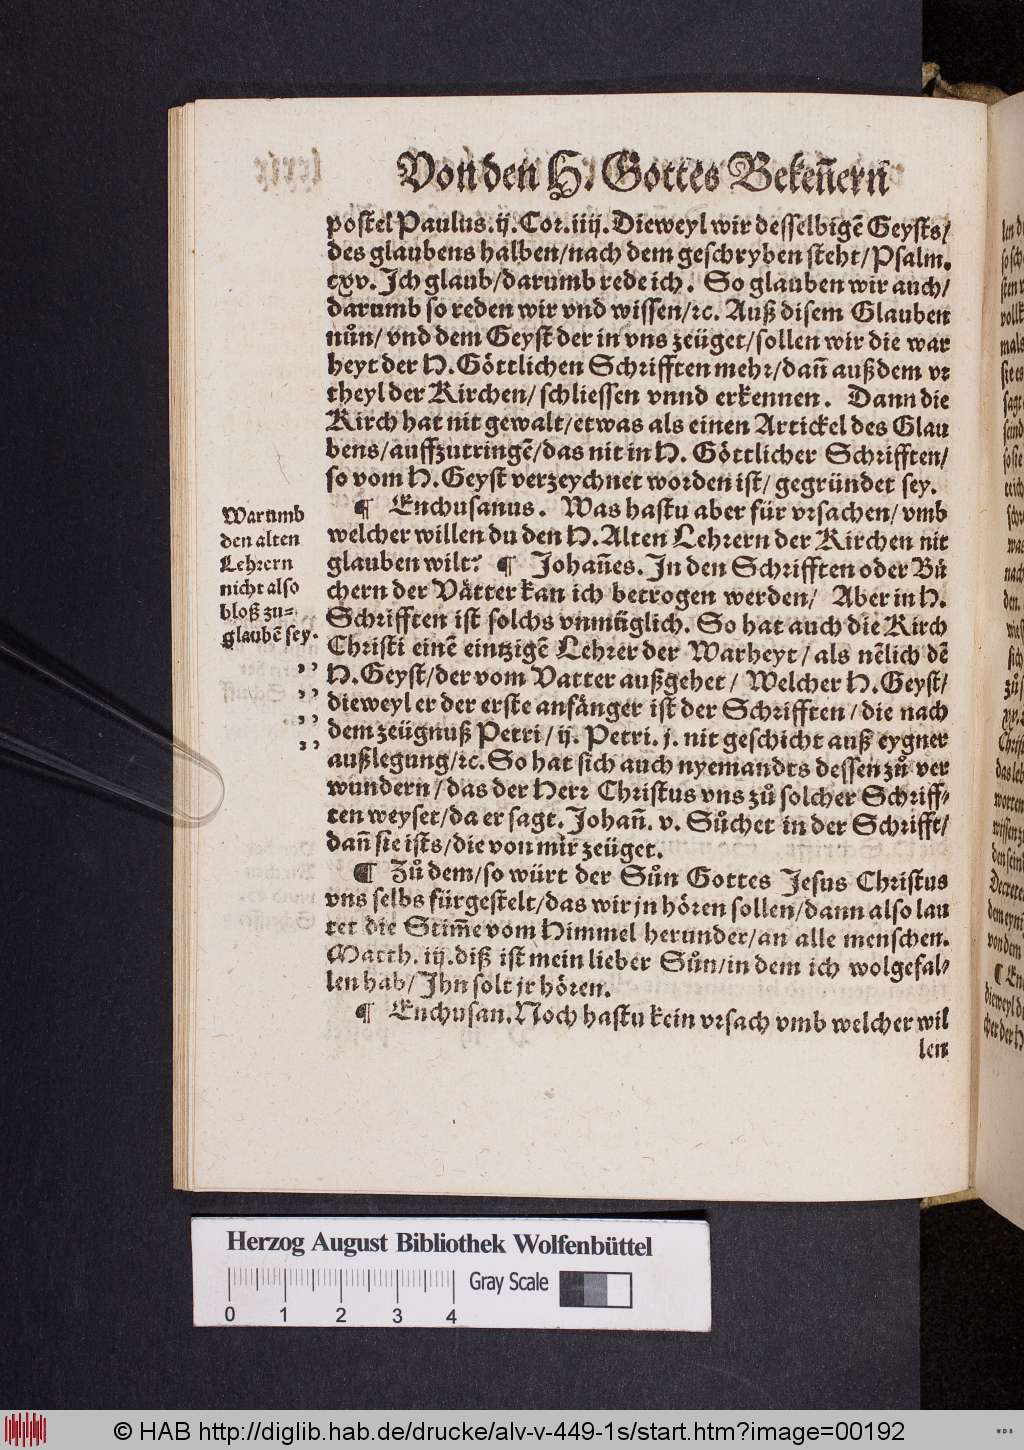 Von den H. Gottes Bekeñern
postel Paulus. ij. Cor. iiij. Dieweyl wir desselbigẽ Geysts/
des glaubens halben/nach dem geschryben steht/Psalm.
cxv. Ich glaub/darumb rede ich. So glauben wir auch/
darumb so reden wir vnd wissen/ꝛc. Auß disem Glauben
nůn/ vnd dem Geyst der in vns zeüget/sollen wir die war
heyt der H. Göttlichen Schrifften mehr/dañ auß dem vr
theyl der Kirchen/ schliessen vnnd erkennen. Dann die
Kirch hat nit gewalt/etwas als einen Artickel des Glau
bens/auffzutringẽ/das nit in H. Göttlicher Schrifften/
so vom H. Geyst verzeychnet worden ist/ gegründet sey.
¶ Enchusanus. Was hastu aber für vrsachen/ vmb
welcher willen du den H. Alten Lehrern der Kirchen nit
glauben wilt? ¶ Johañes. In den Schrifften oder Bü
chern der Vätter kan ich betrogen werden/ Aber in H.
Schrifften ist solchs vnmüglich. So hat auch die Kirch
Christi einẽ eintzigẽ Lehrer der Warheyt/ als nẽlich dẽ
H. Geyst/der vom Vatter außgehet/ Welcher H. Geyst/
dieweyl er der erste anfänger ist der Schrifften/die nach
dem zeügnuß Petri/ ij. Petri. j. nit geschicht auß eygner
außlegung/ꝛc. So hat sich auch nyemandts dessen zů ver
wundern/das der Herr Christus vns zů solcher Schriff⸗
ten weyset/da er sagt. Johañ. v. Sůchet in der Schrifft/
dañ sie ists/die von mir zeüget.
¶ Zů dem/so würt der Sůn Gottes Jesus Christus
vns selbs fürgestelt/das wir jn hören sollen/dann also lau
tet die Stim̃e vom Himmel herunder/an alle menschen.
Matth. iij. diß ist mein lieber Sůn/in dem ich wolgefal⸗
len hab/ Ihn solt jr hören.
¶ Enchusan. Noch hastu kein vrsach vmb welcher wil
len
Warumb
den alten
Lehrern
nicht also
bloß zu⸗
glaubẽ sey.
,,
,,
,,
,,
Herzog August Bibliothek Wolfenbüttel
Gray Scale
0 1 2 3 4
© HAB http://diglib.hab.de/drucke/alv-v-449-1s/start.htm?image=00192